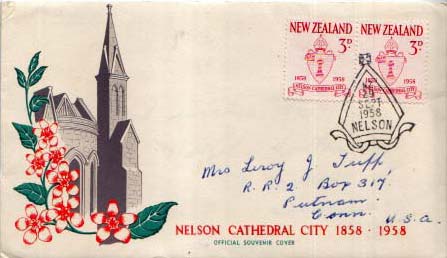 NEW ZEALAND
3D
1858 1958
NELSON CATHEDRAL CITY
NEW ZEALAND
3D
1858 1958
NELSON CATHEDRAL CITY
29
SEPT
1958
NELSON
Mrs Leroy J Tuff
R.R 2 Box 317
Putnam
Conn.
U.S.A.
NELSON CATHEDRAL CITY 1858 · 1958
OFFICIAL SOUVENIR COVER